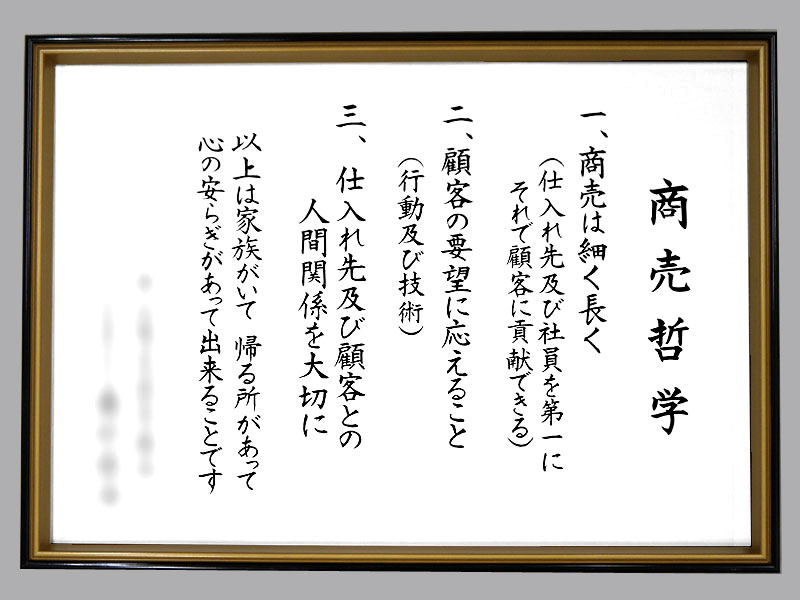 商売哲学
一、商売は細く長く
（仕入れ先及び社員を第一に
それで顧客に貢献できる）
二、顧客の要望に応えること
（行動及び技術）
三、仕入れ先及び顧客との
人間関係を大切に
以上は家族がいて 帰る所があって
心の安らぎがあって出来ることです